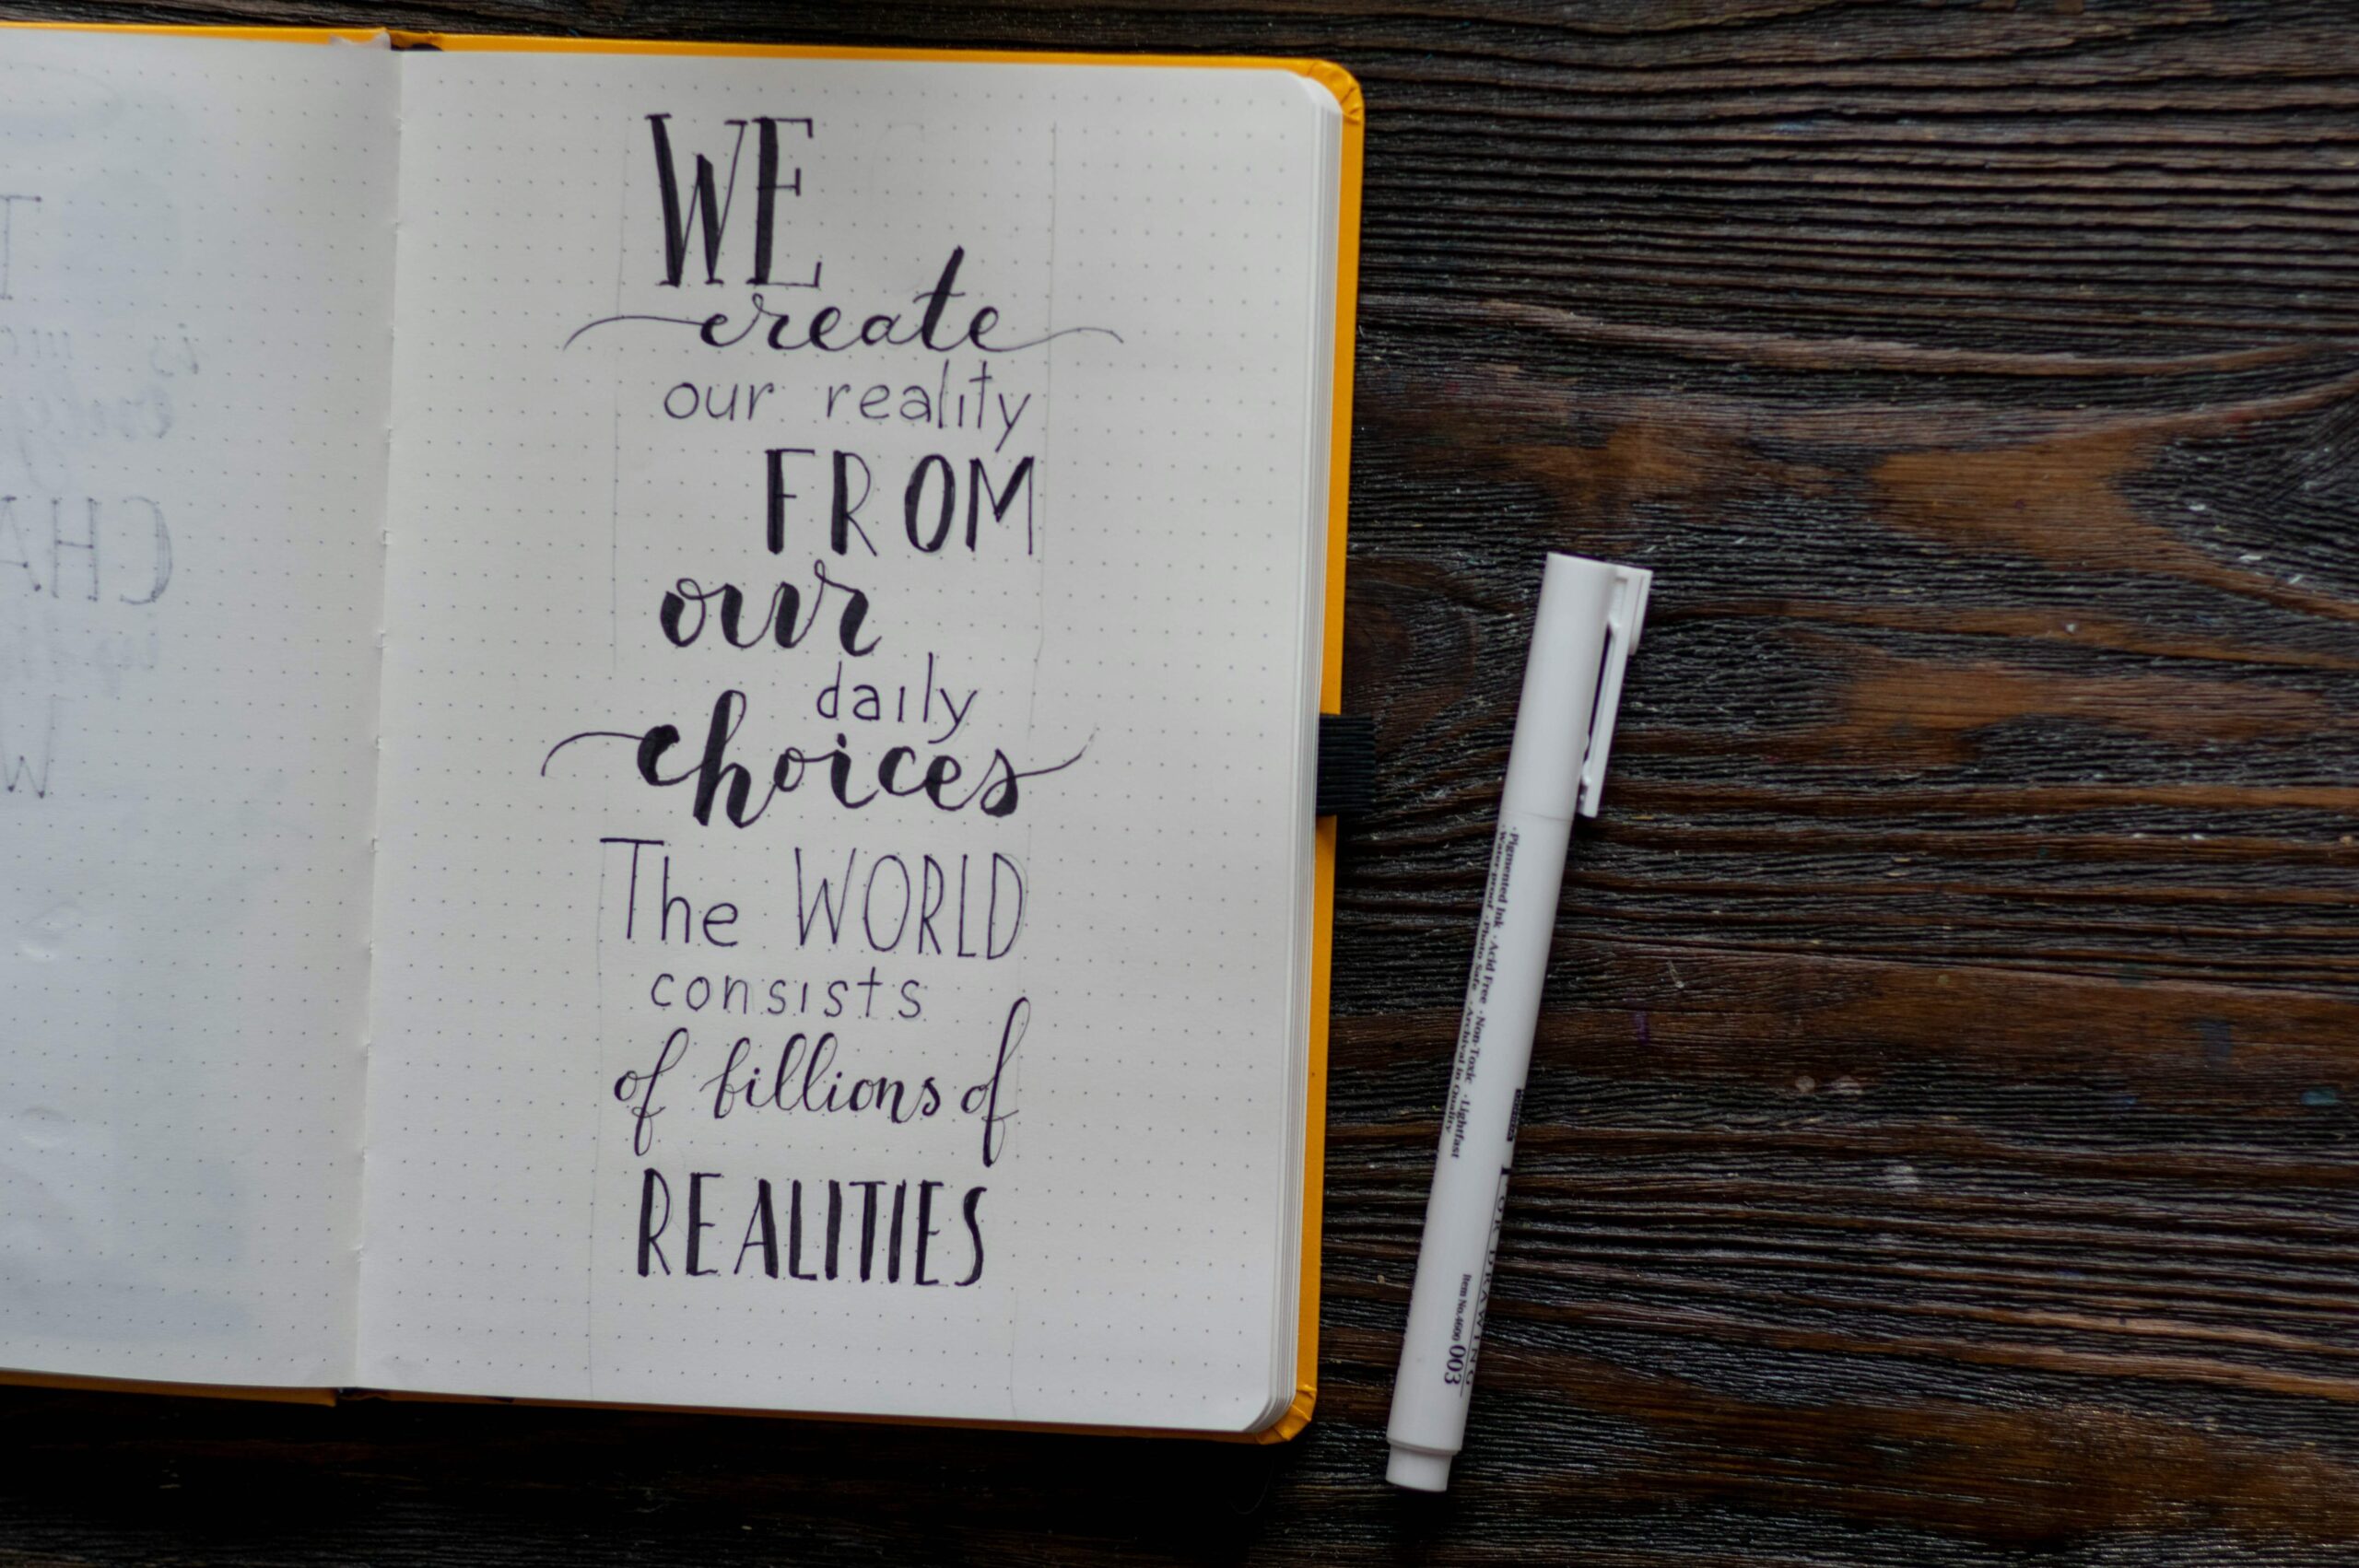 WE
create
our reality
FROM
our
daily
choices
The WORLD
consists
of billions of
REALITIES
· Pigmented Ink · Acid Free · Non-Toxic · Lightfast
· Waterproof · Photo Safe · Archival in Quality
DRAWING
Item No.4600 003